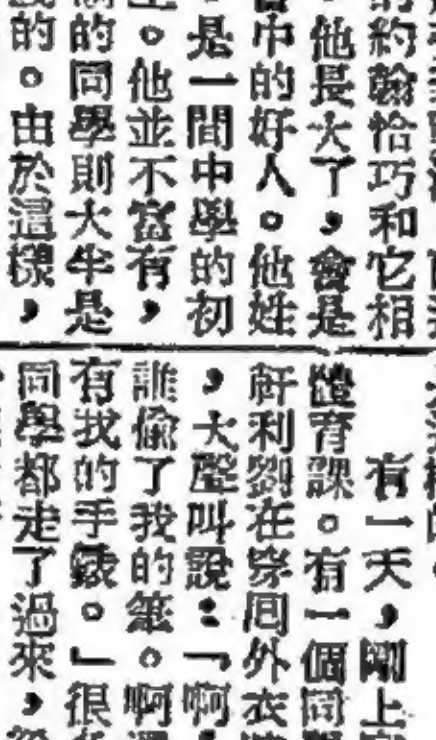 的約翰恰巧和它相
他長大了，會是
書中的好人。他姓
是一間中學的初
。他並不富有，
的同學則大半是
的。由於這樣，
有一天，剛上
體育課。有一個同
軒利劉在穿囘外衣
，大聲叫說：「啊
誰偷了我的筆。啊
有我的手錶。」很
同學都走了過來，